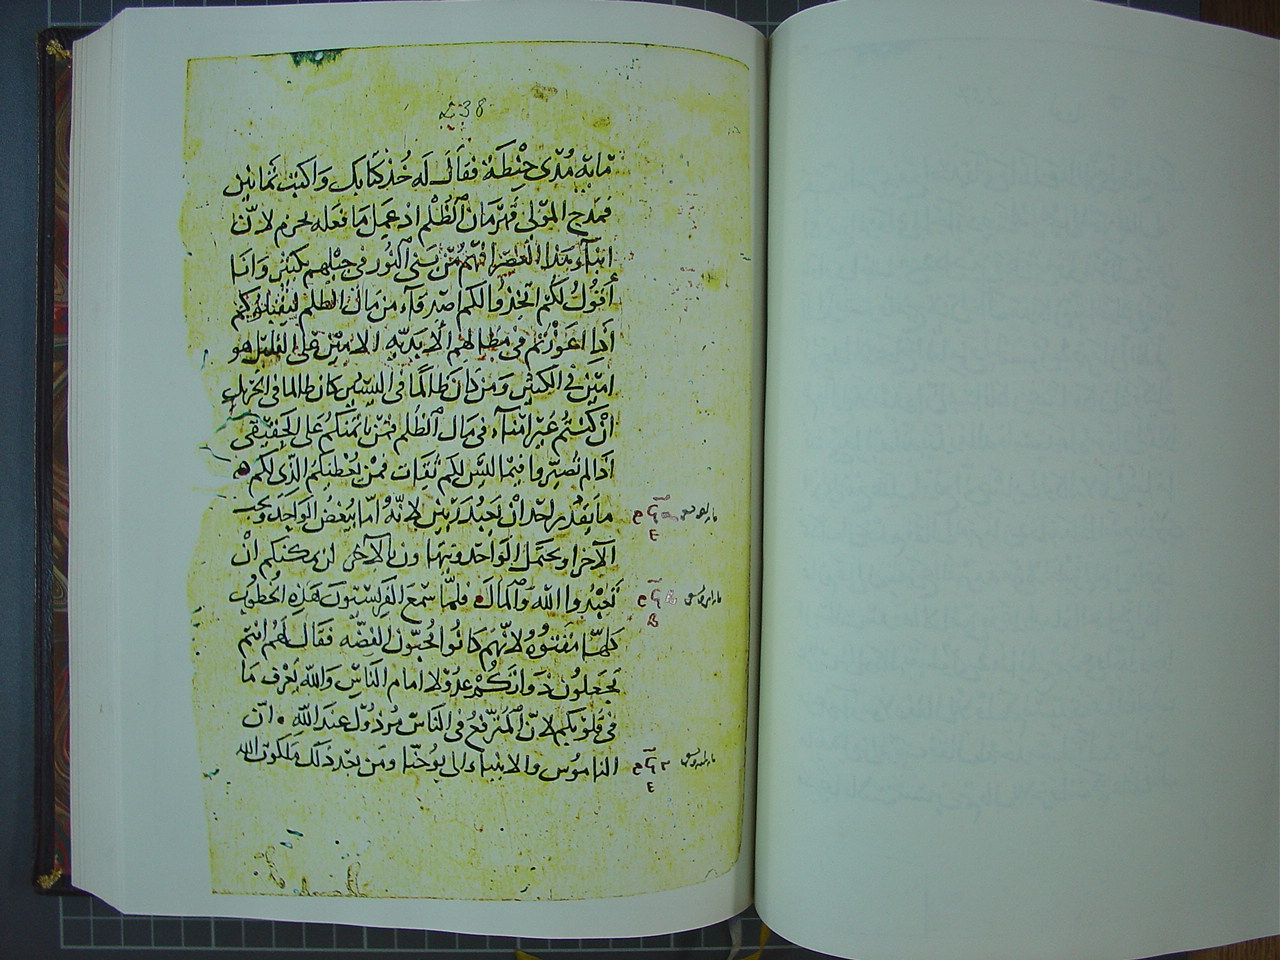 238
مايه مُدّى حِنْطَة فقال له خُذ كتابك واكتب ثمانين
فمدح المولى قهرمان الظُلْم اذ عمل ما فعله بحزم لانّ
ابناء هذا العصر افهم من بنى النور فى جيلهم كثير وانا
أقول لكم اتخذوا لكم اصدقاء من مال الظلم ليقبلوكم
اذا اعوزتم فى مظالهم الابديه الامين على القليل هو
امين فى الكثير ومن كان ظالما فى اليسير كان ظالما فى الجزيل
ان كنتم غير امناء فى مال الظلم فمن ياتمنكم على الحقيقى
اذا لم تصيروا فيما ليس لكم ثقات فمن يعطيكم الذى لكم ه
ما يقدر احد ان يعبد ربين لانه امّا يبغض الواحد ويحب
الآخر او يحتمل الواحد ويتهاون بالآخر لن يمكنكم ان
تعبدوا الله والمال فلمّا سمع الفريسيون هذه الخطوب
كلها مقتوه لانهم كانوا يُحبّون الفضّه فقال لهم انتم
تجعلون ذواتكم عدولا امام الناس والله يعرف ما
فى قلوبكم لانّ المترفع فى الناس مرذول عند الله . انّ
الناموس والانبياء الى يوحنّا ومن بعد ذلك ملكوت الله